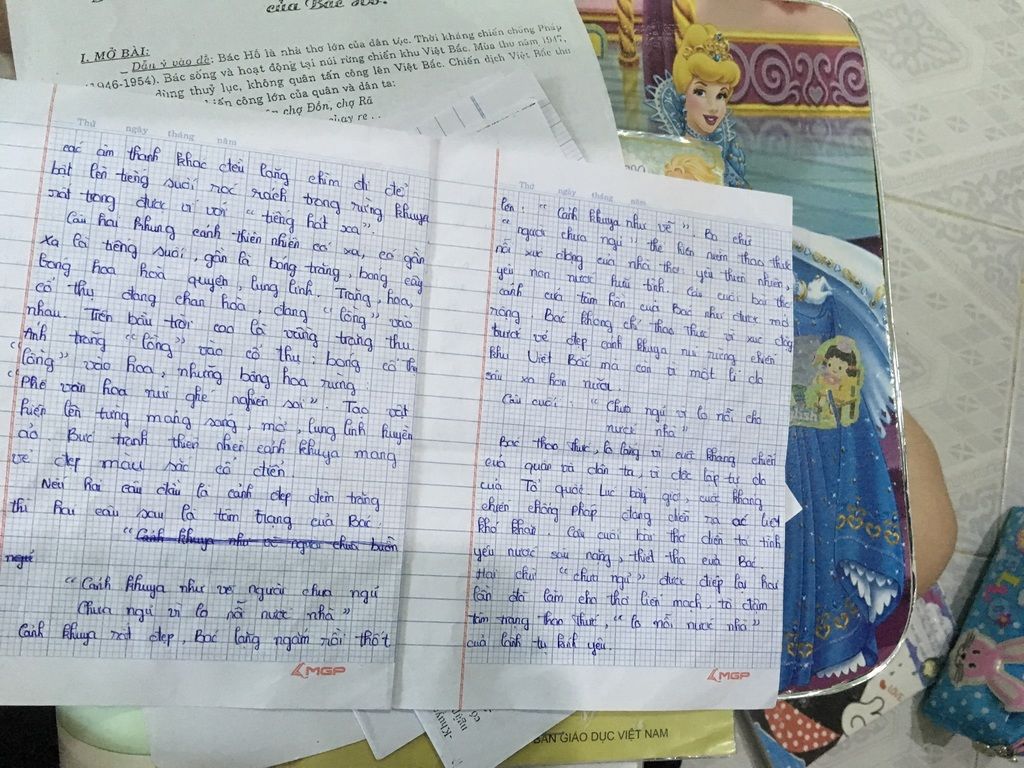 của Bác Hồ.
I. MỞ BÀI:
_ Dẫn ý vào đề: Bác Hồ là nhà thơ lớn của dân tộc. Thời kháng chiến chống Pháp
(1946-1954). Bác sống và hoạt động tại núi rừng chiến khu Việt Bắc. Mùa thu năm 1947,
dùng thuỷ lục, không quân tấn công lên Việt Bắc. Chiến dịch Việt Bắc thu
chiến công lớn của quân và dân ta:
chợ Đồn, chợ Rã
Thứ ngày tháng năm
các âm thanh khác đều lắng chìm đi để
bật lên tiếng suối róc rách trong rừng khuya
rất trong được ví với “tiếng hát xa”.
Câu hai khung cảnh thiên nhiên có xa, có gần
xa là tiếng suối, gần là bóng trăng, bóng cây
bóng hoa hoà quyện, lung linh. Trăng, hoa,
cổ thụ đang chan hoà, đang “lồng” vào
nhau. Trên bầu trời cao là vầng trăng thu.
Ánh trăng “lồng” vào cổ thụ, bóng cổ thụ
“lồng” vào hoa, những bông hoa rừng.
“Phê vân hoa núi ghé nghiên soi”. Tạo vật
hiện lên từng mảng sáng, mờ, lung linh huyền
ảo. Bức tranh thiên nhiên cảnh khuya mang
vẻ đẹp màu sắc cổ điển
Nếu hai câu đầu là cảnh đẹp đêm trăng
thì hai câu sau là tâm trạng của Bác.
“Cảnh khuya như vẽ người chưa buồn
ngủ
“Cảnh khuya như vẽ người chưa ngủ
Chưa ngủ vì lo nỗi nước nhà”
Cảnh khuya rất đẹp, Bác lặng ngắm rồi thốt
MGP
Thứ ngày tháng năm
lên: “Cảnh khuya như vẽ”. Ba chữ
“người chưa ngủ” thể hiện niềm thao thức
nỗi xúc động của nhà thơ: yêu thiên nhiên,
yêu non nước hữu tình. Câu cuối bài thơ
cánh cửa tâm hồn của Bác như được mở
rộng. Bác không chỉ thao thức vì xúc động
trước vẻ đẹp cảnh khuya núi rừng chiến
khu Việt Bắc mà còn vì một lí do
sâu xa hơn nữa.
Câu cuối: “Chưa ngủ vì lo nỗi cho
nước nhà”
Bác thao thức, lo lắng vì cuộc kháng chiến
của quân và dân ta, vì độc lập tự do
của Tổ quốc. Lúc bấy giờ, cuộc kháng
chiến chống Pháp đang diễn ra ác liệt
khó khăn. Câu cuối bài thơ diễn tả tình
yêu nước sâu nặng, thiết tha của Bác.
Hai chữ “chưa ngủ” được điệp lại hai
lần đã làm cho thơ liền mạch, tô đậm
tâm trạng thao thức, “lo nỗi nước nhà”
của lãnh tụ kính yêu.
MGP
BẢN GIÁO DỤC VIỆT NAM
LOVE